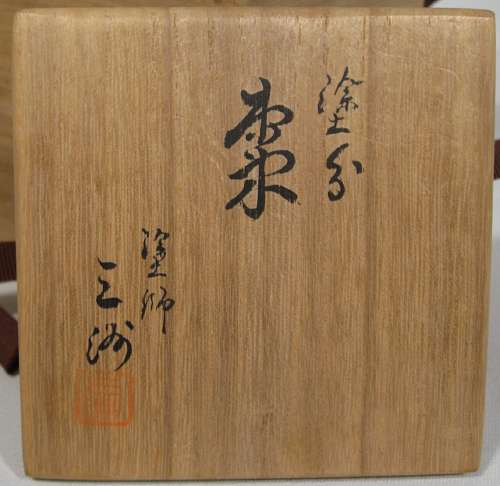 塗分
棗
塗師
三洲